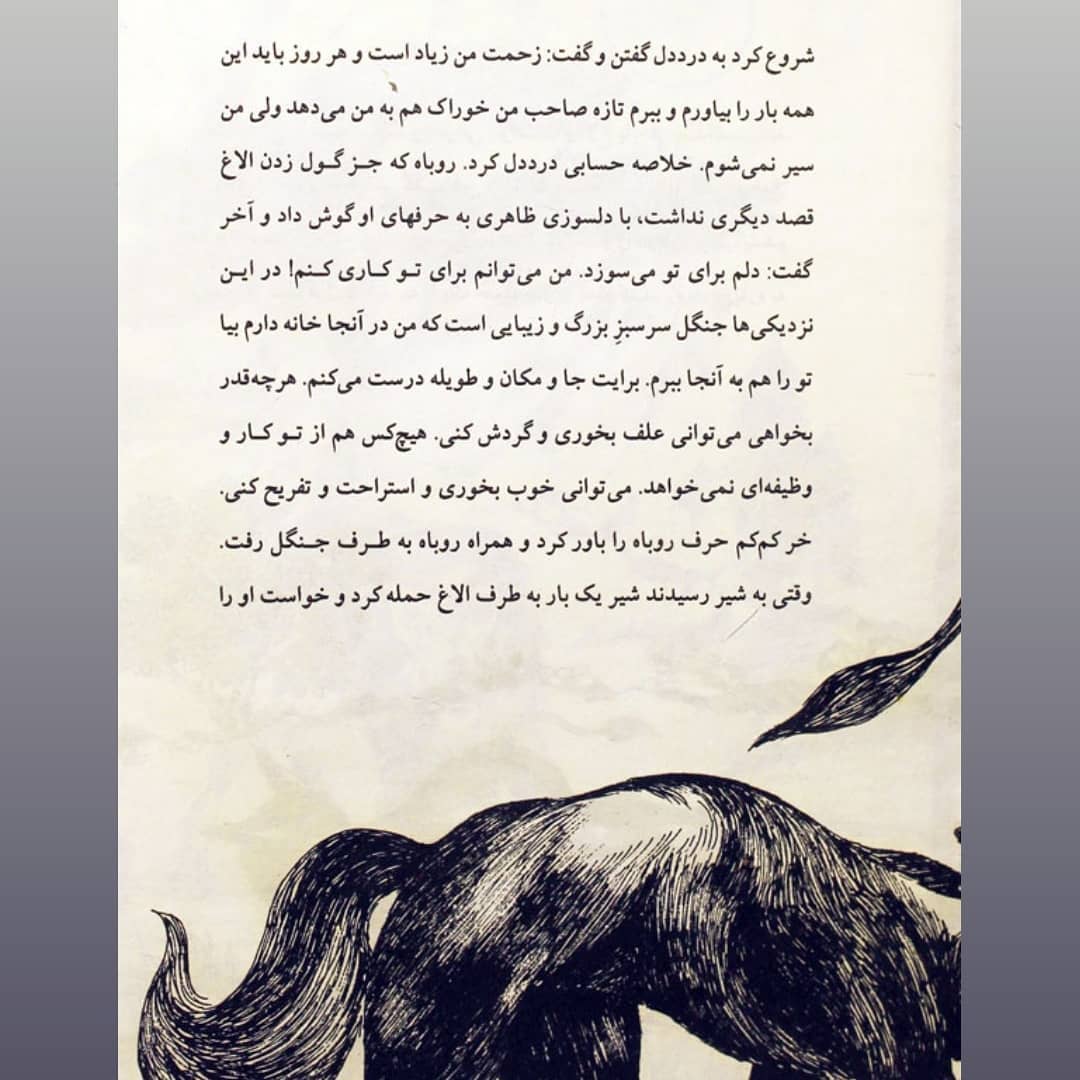 شروع کرد به درددل گفتن و گفت: زحمت من زیاد است و هر روز باید این
همه بار را بیاورم و ببرم تازه صاحب من خوراک هم به من می‌دهد ولی من
سیر نمی‌شوم. خلاصه حسابی درددل کرد. روباه که جز گول زدن الاغ
قصد دیگری نداشت، با دلسوزی ظاهری به حرفهای او گوش داد و آخر
گفت: دلم برای تو می‌سوزد. من می‌توانم برای تو کاری کنم! در این
نزدیکی‌ها جنگل سرسبزِ بزرگ و زیبایی است که من در آنجا خانه دارم بیا
تو را هم به آنجا ببرم. برایت جا و مکان و طویله درست می‌کنم. هرچه‌قدر
بخواهی می‌توانی علف بخوری و گردش کنی. هیچ‌کس هم از تو کار و
وظیفه‌ای نمی‌خواهد. می‌توانی خوب بخوری و استراحت و تفریح کنی.
خر کم‌کم حرف روباه را باور کرد و همراه روباه به طرف جنگل رفت.
وقتی به شیر رسیدند شیر یک بار به طرف الاغ حمله کرد و خواست او را